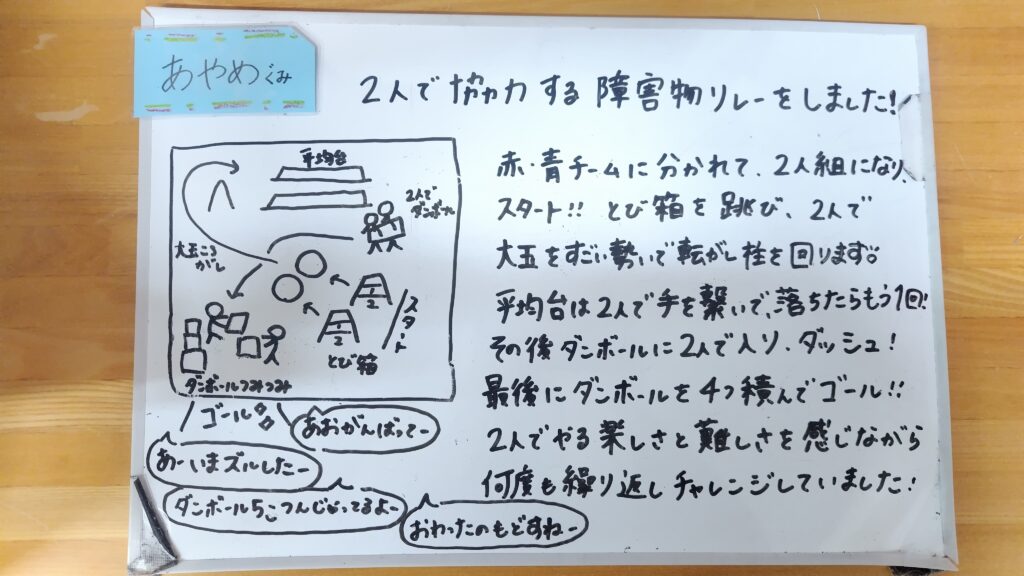 あやめぐみ
2人で協力する障害物リレーをしました!
平均台
2人で
ダンボール
大玉ころ
がし
スタート
1
2
1
2
とび箱
ダンボールつみつみ
ゴール
あおがんばってー
あーいまズルしたー
ダンボール5こつんじゃってるよー
おわったのもどすねー
赤・青チームに分かれて、2人組になり、
スタート!! とび箱を跳び、2人で
大玉をすごい勢いで転がし柱を回ります。
平均台は2人で手を繋いで、落ちたらもう1回!
その後ダンボールに2人で入り、ダッシュ!
最後にダンボールを4つ積んでゴール!!
2人でやる楽しさと難しさを感じながら
何度も繰り返しチャレンジしていました!